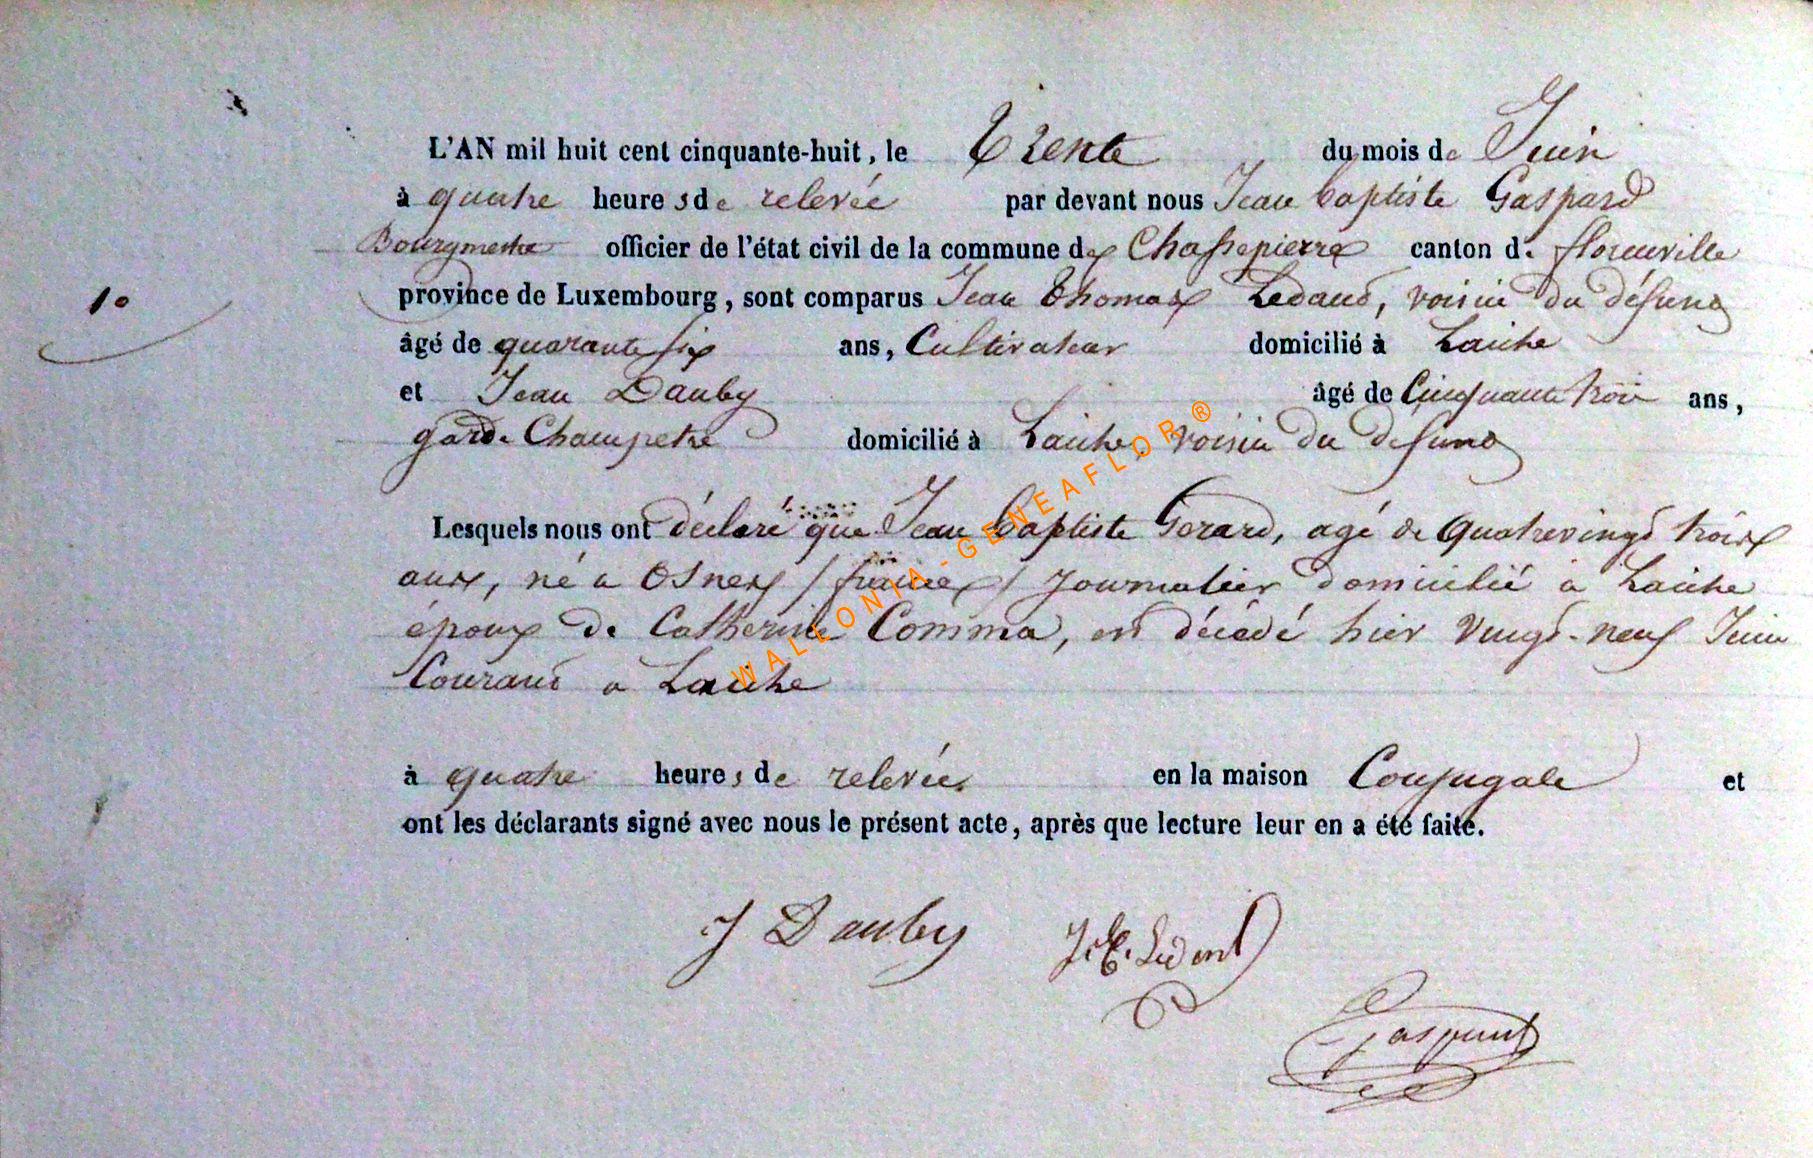 L'AN mil huit cent cinquante-huit, le Trente du mois de Juin
à quatre heures de relevée par devant nous Jean baptiste Gaspard
Bourgmestre officier de l'état civil de la commune de Chassepierre canton de florenville
10 province de Luxembourg, sont comparus Jean Thomas Ledant, voisin du défunt
âgé de quarante six ans, Cultivateur domicilié à Laiche
et Jean Dauby âgé de Cinquante trois ans,
garde Champetre domicilié à Laiche, voisin du defunt
Lesquels nous ont déclaré que Jean baptiste Gerard, agé de quatrevingt trois
ans, né a Osnes / france / Journalier domicilié a Laiche
époux de Catherine Comma, est décédé hier vingt-neuf Juin
Courant a Laiche
à quatre heures de relevée en la maison Conjugale et
ont les déclarants signé avec nous le présent acte, après que lecture leur en a été faite.
J Dauby J. T. Ledent
Gaspard
WALLONIA - GENEAFLOR ®